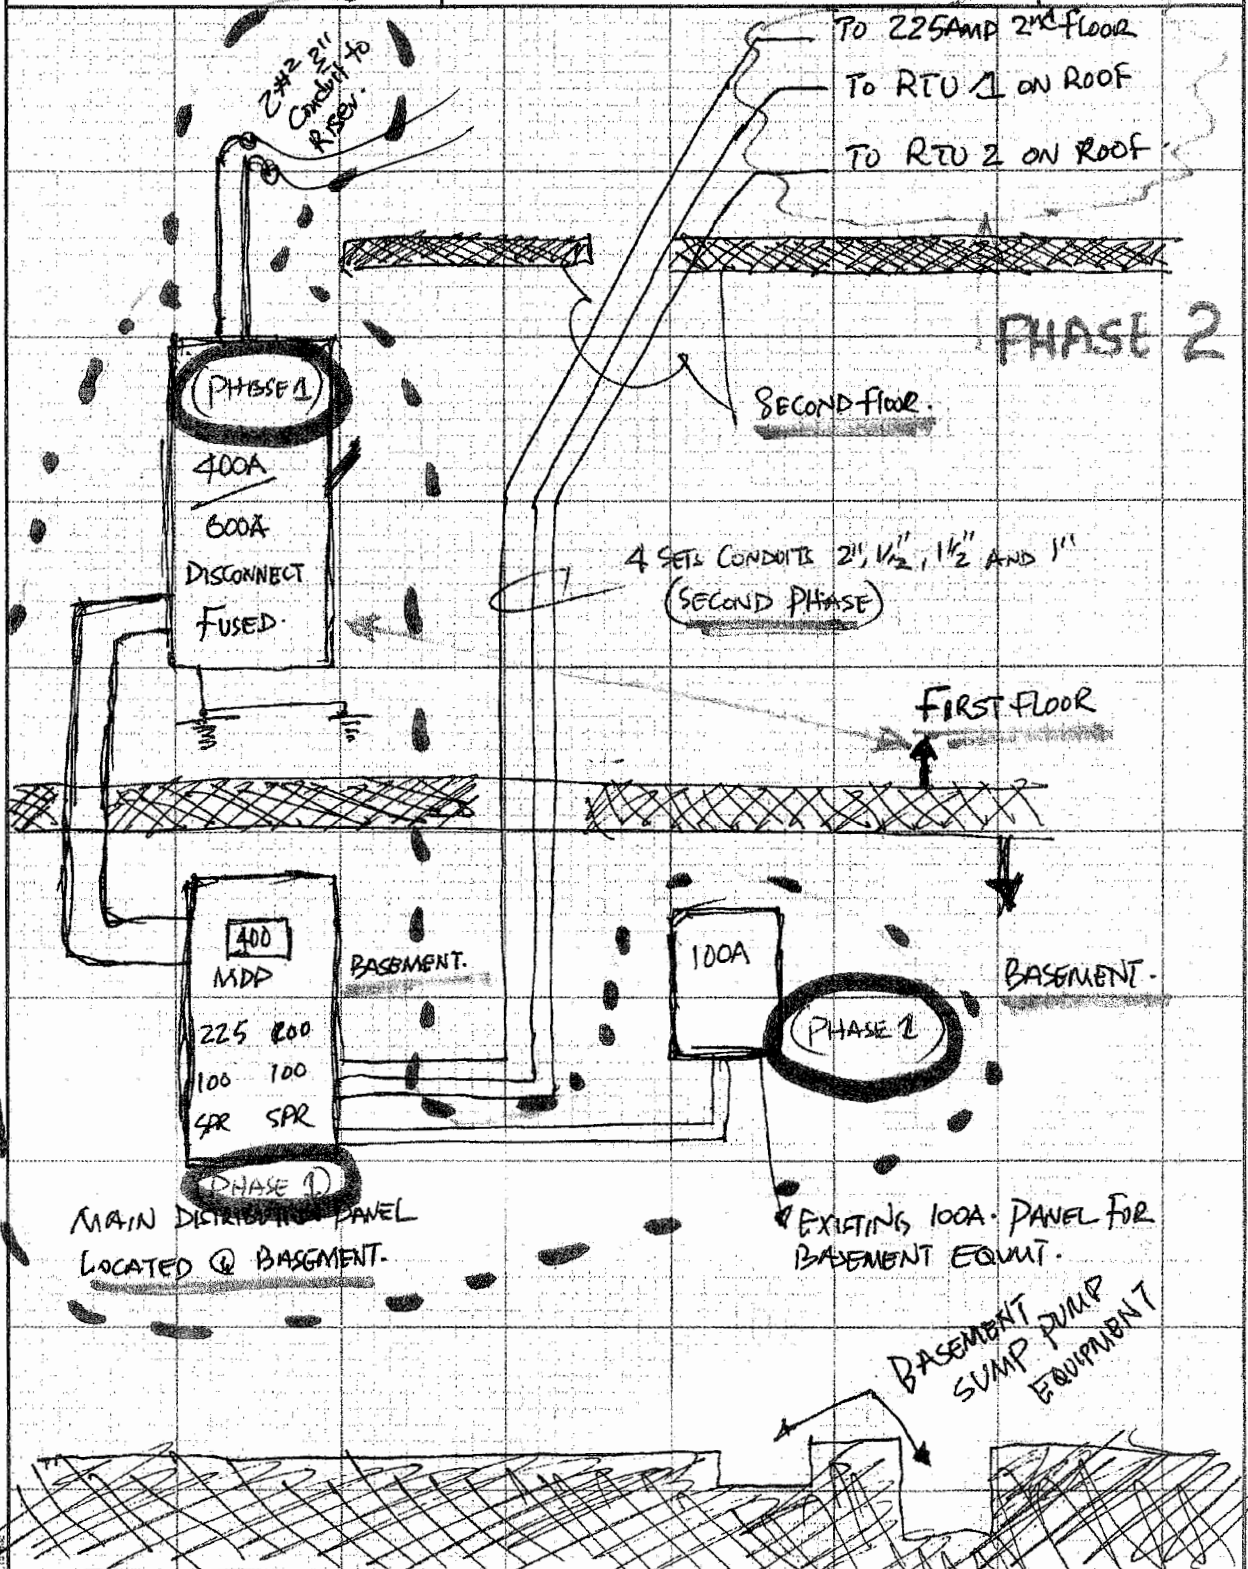 TO 225AMP 2nd FLOOR
TO RTU 1 ON ROOF
TO RTU 2 ON ROOF
Conduit to
Riser.
PHASE 2
(PHASE 1)
SECOND FLOOR.
400A
600A
DISCONNECT
FUSED.
4 SETS CONDUITS 2", 1½", 1½" AND 1"
(SECOND PHASE)
FIRST FLOOR
400
MDP
225 200
100 100
SPR SPR
BASEMENT.
100A
BASEMENT.
(PHASE 1)
(PHASE 1)
MAIN DISTRIBUTION PANEL
LOCATED @ BASEMENT.
EXISTING 100A. PANEL FOR
BASEMENT EQUMT.
BASEMENT
SUMP PUMP
EQUIPMENT